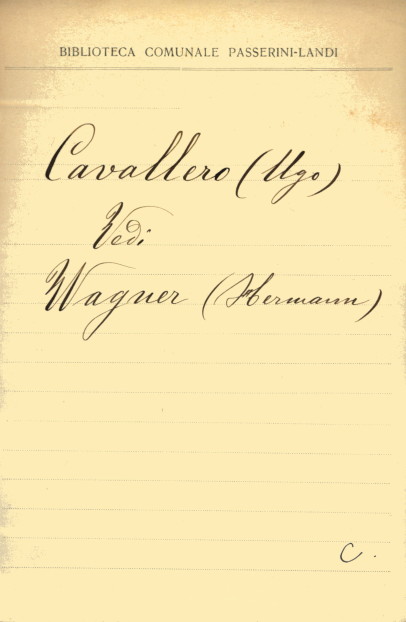 BIBLIOTECA COMUNALE PASSERINI-LANDI
Cavallero (Ugo)
Vedi
Wagner (Hermann)
C.